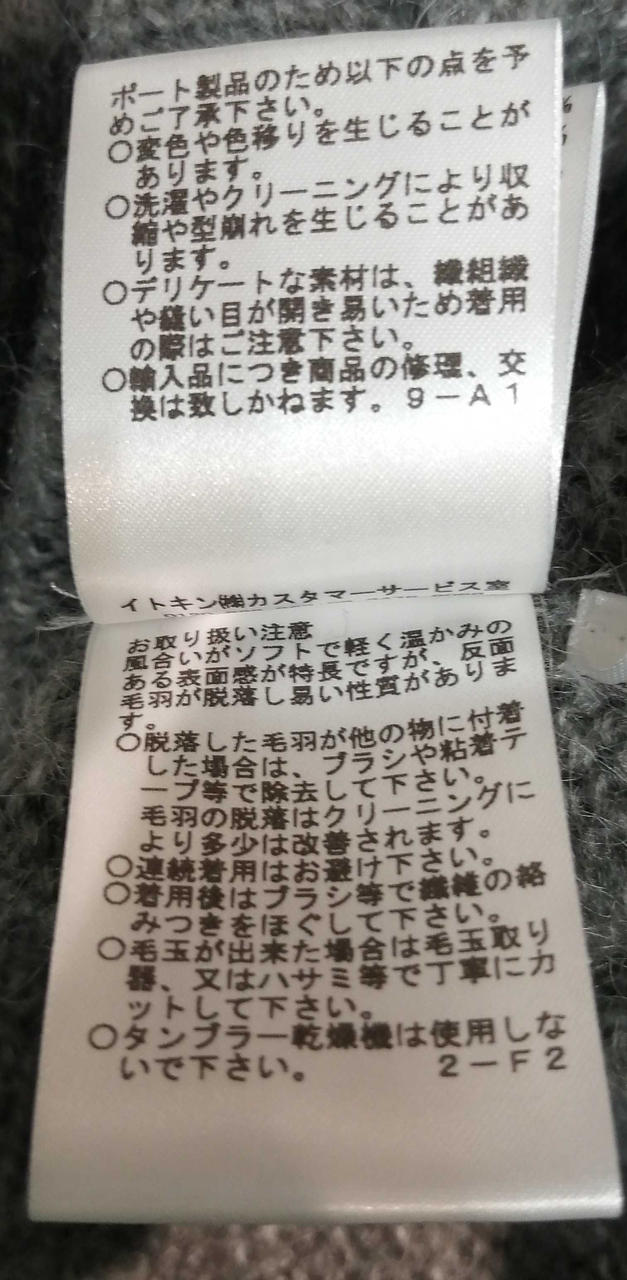 ポート製品のため以下の点を予
めご了承下さい。
○変色や色移りを生じることが
あります。
○洗濯やクリーニングにより収
縮や型崩れを生じることがあ
ります。
○デリケートな素材は、繊組織
や縫い目が開き易いため着用
の際はご注意下さい。
○輸入品につき商品の修理、交
換は致しかねます。9-A1
イトキン㈱カスタマーサービス室
お取り扱い注意
風合いがソフトで軽く温かみの
ある表面感が特長ですが、反面
毛羽が脱落し易い性質がありま
す。
○脱落した毛羽が他の物に付着
した場合は、ブラシや粘着テ
ープ等で除去して下さい。
毛羽の脱落はクリーニングに
より多少は改善されます。
○連続着用はお避け下さい。
○着用後はブラシ等で繊維の絡
みつきをほぐして下さい。
○毛玉が出来た場合は毛玉取り
器、又はハサミ等で丁寧にカ
ットして下さい。
○タンブラー乾燥機は使用しな
いで下さい。 2-F2